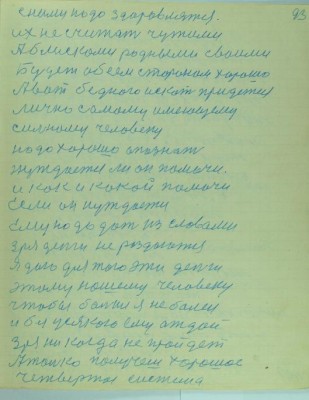 с ними надо здоровлятся.
их не считат чужими
А близкими родными своими
Будет обеем сторонам хорошо
А вот бедного искат придется
лично самому имеющему
сильному человеку
надо хорошо опознат
нуждается ли он помочи.
и как и какой помочи
Если он нуждается
Ему надо дат из словами
Зря денги не роздаются
Я даю для того эти денги
этому нашему человеку
чтобы болши я не болел
и бя усякого ему отдай
Зря никогда не пройдет
А толко получеш хорошое
четвертая система
93